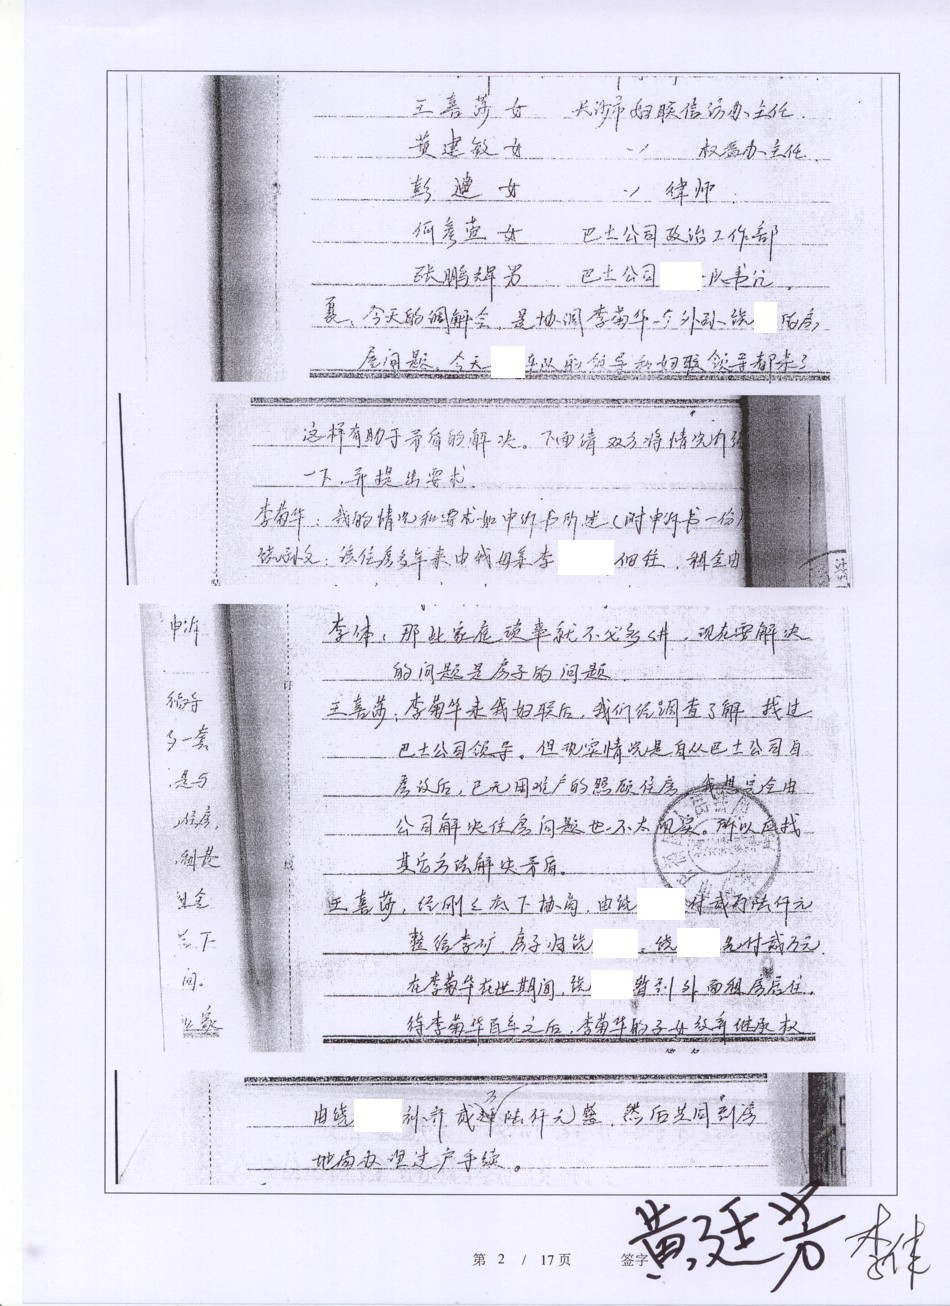 王喜莎 女 长沙市妇联信访办主任.
黄建敏 女 〃 权益办主任.
彭 女 〃 律师
何 萱 女 巴士公司政治工作部
张鹏辉 男 巴士公司 队书记.
夏: 今天的调解会, 是协调李菊华与外孙饶 的房
屋问题, 今天 车队的领导和妇联领导都来了
这样有助于矛盾的解决。下面请双方将情况介绍
一下, 并提出要求.
李菊华: 我的情况和要求如申诉书所述(附申诉书一份)
: 该住房多年来由我母亲李 佃住, 租金由
申诉
了一套
是与
住房,
金
下
间。
李伟: 那些家庭琐事就不必多讲, 现在要解决
的问题是房子的问题.
王喜莎: 李菊华来我妇联后, 我们经调查了解, 找过
巴士公司领导。但现实情况是自从巴士公司自
房改后, 已无困难户的照顾住房, 我想完全由
公司解决住房问题也不太现实。所以应找
其它方法解决矛盾。
王喜莎: 经刚才庭下协商, 由饶 付贰万陆仟元
整给李矿, 房子归饶 。饶 先付贰万元.
在李菊华在世期间, 饶 暂到外面租房居住.
待李菊华百年之后, 李菊华的子女放弃继承权
由饶 补齐贰 陆仟元整, 然后共同到房
地局办理过户手续。
第 2 / 17 页 签字 黄廷芳 李伟